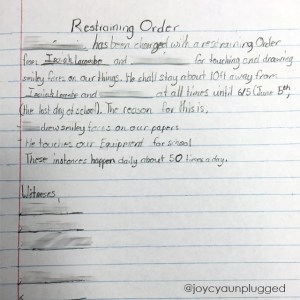 Restraining Order
has been charged with a restraining Order
from Isaiah Lacombe and for touching and drawing
smiley faces on our things. He shall stay about 10ft away from
Isaiah Lacombe and at all times until 6/5 (June 5th,
(the last day of school). The reason for this is,
drew smiley faces on our papers
He touches our Equipment for school
These instances happen daily about 50 times a day.
Witnesses,
@joycyaunplugged